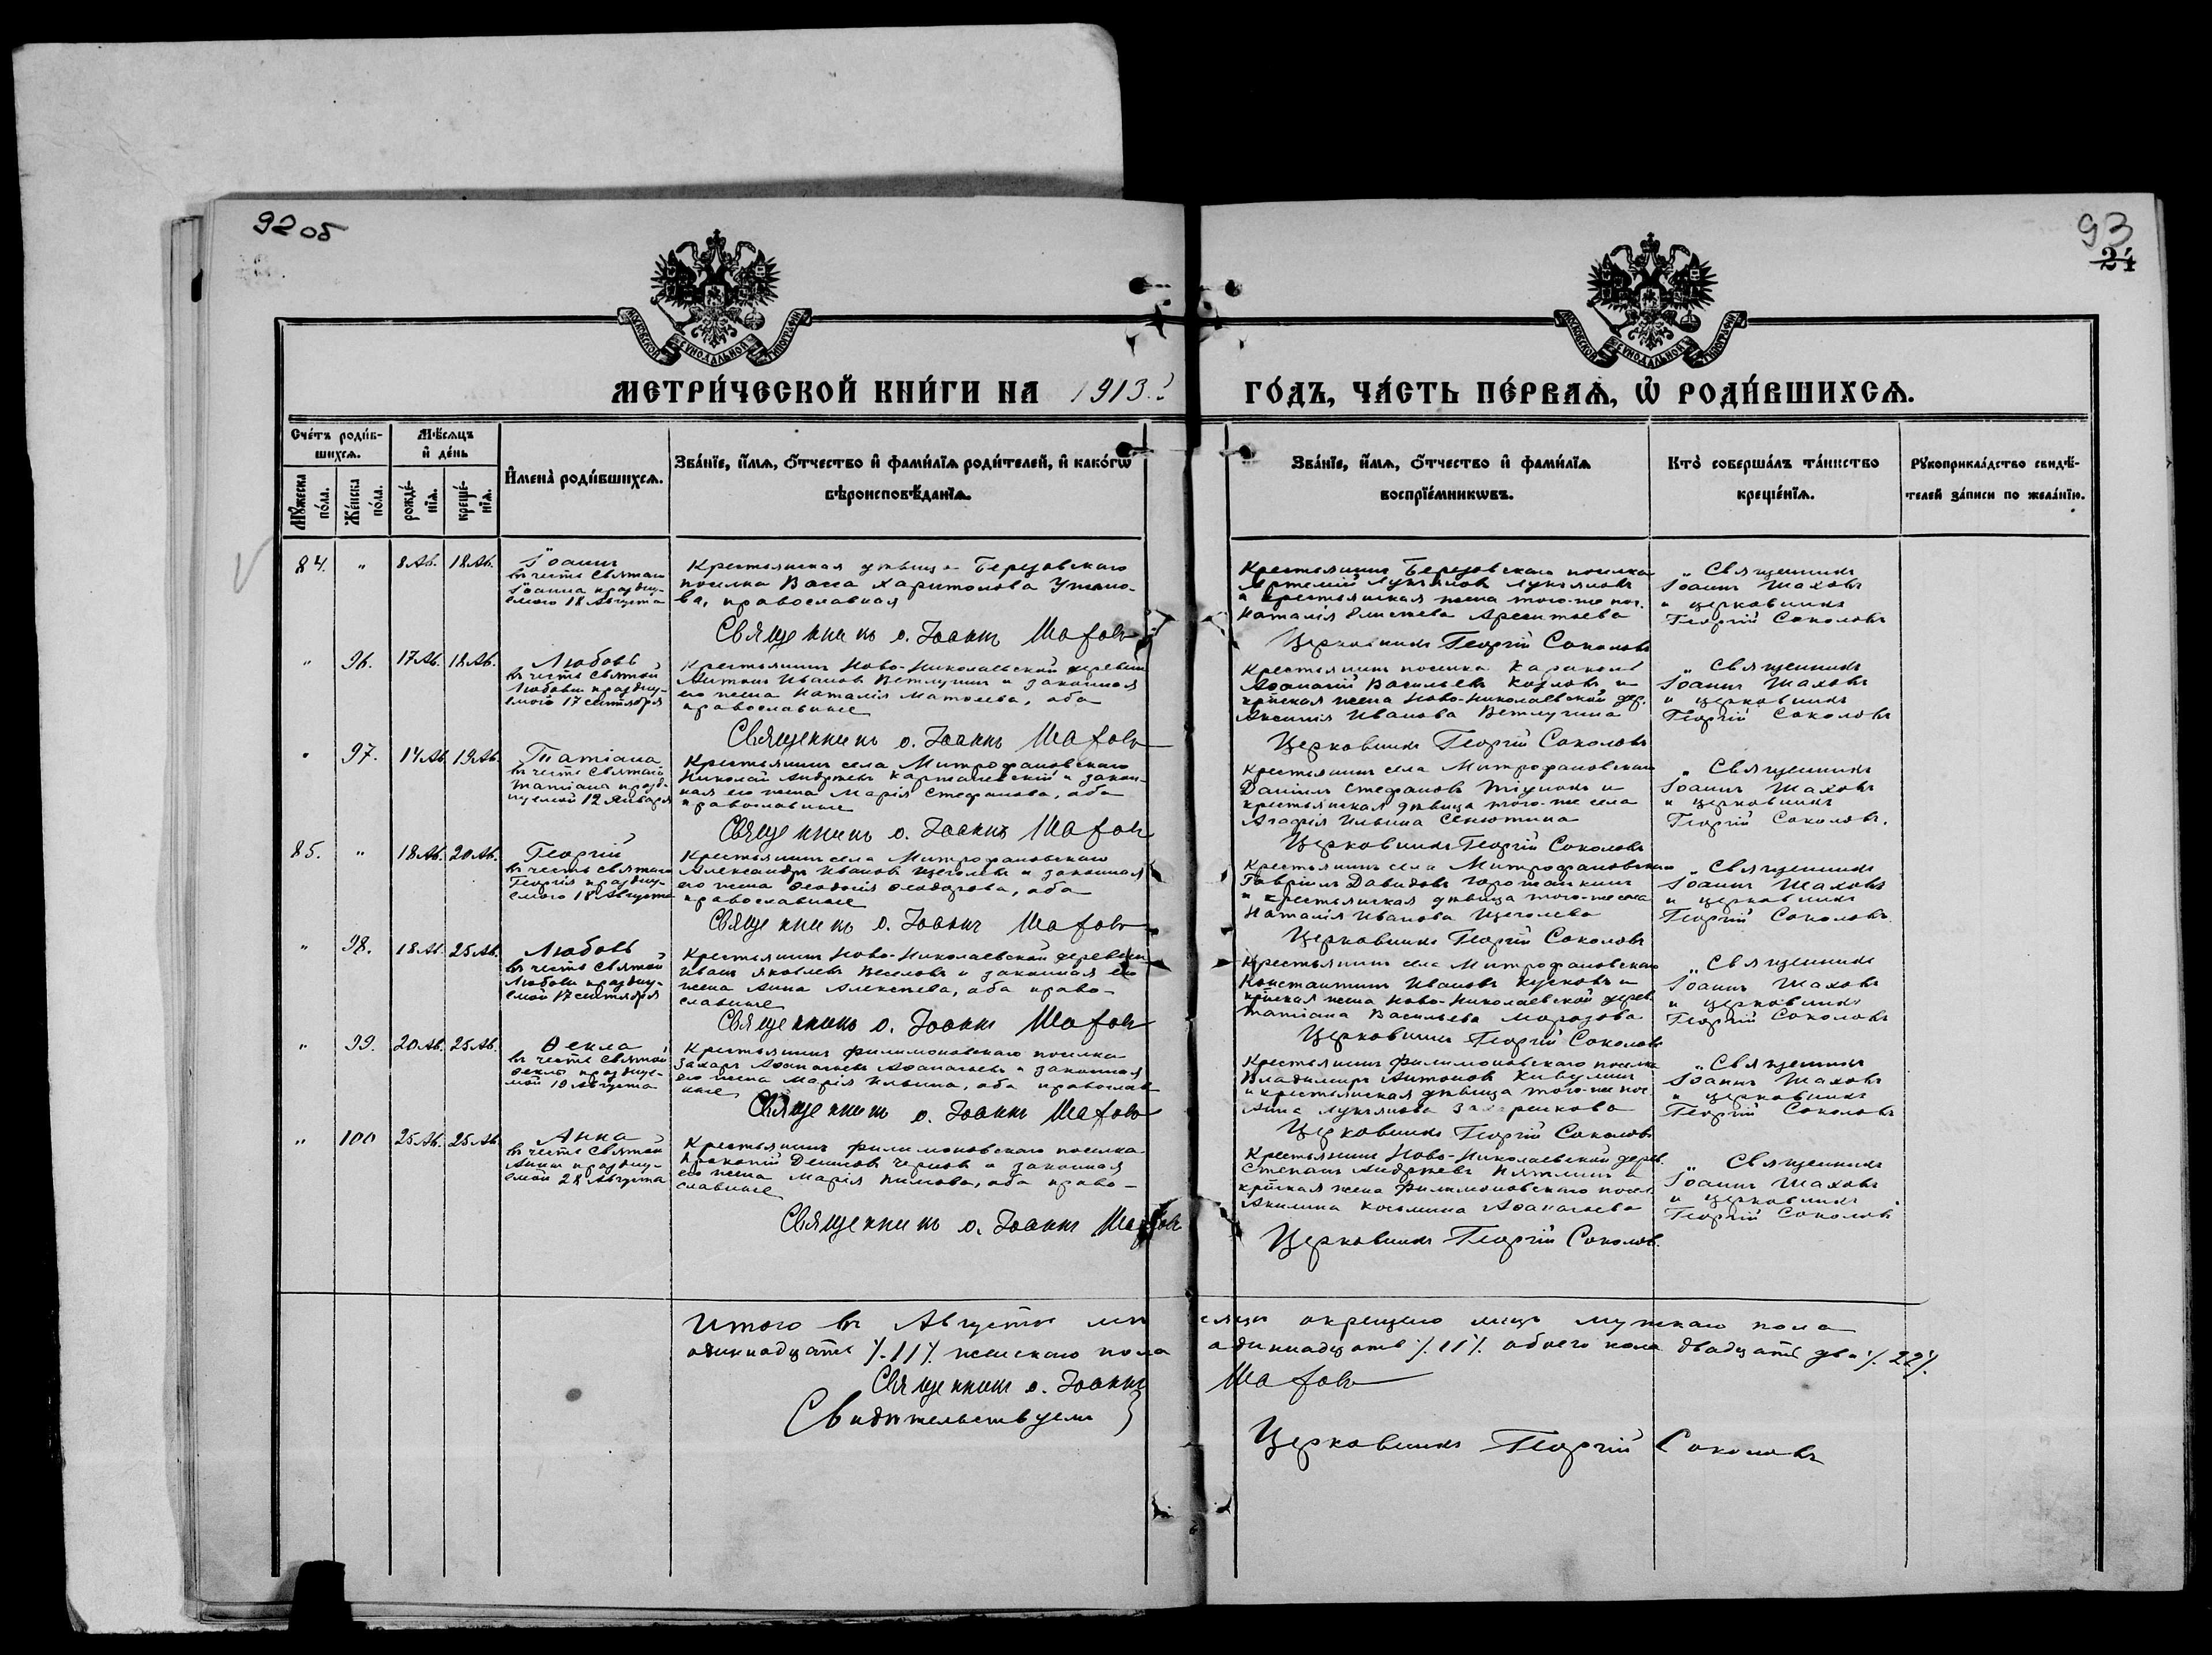 92 об
93
24
МОСКОВСКОЙ СѴНОДАЛЬНОЙ ТИПОГРАФІИ
МОСКОВСКОЙ СѴНОДАЛЬНОЙ ТИПОГРАФІИ
МЕТРИ́ЧЕСКОЙ КНИ́ГИ НА 1913 г.
ГО́ДЪ, ЧА́СТЬ ПЕ́РВАѦ, Ѡ҆ РОДИ́ВШИХСѦ.
Сче́тъ роди́в-
шихсѧ.
Мѣ́сѧцъ
и҆ де́нь
Мꙋ́жеска по́ла.
Же́нска по́ла.
рожде́нїѧ.
креще́нїѧ.
И҆мена̀ роди́вшихсѧ.
Зва́нїе, и҆́мѧ, ѻ҆́тчество и҆ фами́лїѧ роди́телей, и҆ како́гѡ
вѣроисповѣ́данїѧ.
Зва́нїе, и҆́мѧ, ѻ҆́тчество и҆ фами́лїѧ
воспрїе́мникѡвъ.
Кто̀ соверша́лъ та́инство
креще́нїѧ.
Рꙋкоприкла́дство свидѣ́-
телей за́писи по жела́нїю.
84. " 8 Ав. 18 Ав.
Іоаннъ
въ честь Святаго
Іоанна праздну-
емаго 18 Августа
Крестьянская дѣвица Березовскаго
поселка Васса Харитонова
ва, православная
Священникъ о. Іоаннъ Шаховъ
Крестьянинъ Березовскаго поселка
Артемій Лукьяновъ Лукьяновъ
и крестьянская жена того-же пос.
Наталія Арсентьева
Церковникъ Георгій Соколовъ
" Священникъ
Іоаннъ Шаховъ
и церковникъ
Георгій Соколовъ
" 96. 17 Ав. 18 Ав.
Любовь
въ честь Святой
Любови праздну-
емой 17 сентября
Крестьянинъ Ново-Николаевской деревни
Антонъ Ивановъ Ветлугинъ и законная
его жена Наталія Матѳеева, оба
православные
Священникъ о. Іоаннъ Шаховъ
Крестьянинъ поселка
Аѳанасій Васильевъ Козловъ и
кр-нская жена Ново-Николаевской дер.
Аксинія Иванова Ветлугина
Церковникъ Георгій Соколовъ
" Священникъ
Іоаннъ Шаховъ
и церковникъ
Георгій Соколовъ
" 97. 14 Ав. 19 Ав.
Татіана
въ честь Святой
Татіаны празд-
нуемой 12 Января
Крестьянинъ села Митрофановскаго
Николай Андреевъ и закон-
ная его жена Марія Стефанова, оба
православные
Священникъ о. Іоаннъ Шаховъ
Крестьянинъ села Митрофановскаго
Даніилъ Стефановъ и
крестьянская дѣвица того-же села
Агафія Ильина Сенютина
Церковникъ Георгій Соколовъ
" Священникъ
Іоаннъ Шаховъ
и церковникъ
Георгій Соколовъ.
85. " 18 Ав. 20 Ав.
Георгій
въ честь Святаго
Георгія праздну-
емаго 18 Августа
Крестьянинъ села Митрофановскаго
Александръ Ивановъ Щеголевъ и законная
его жена Ѳеодосія Ѳеодорова, оба
православные
Священникъ о. Іоаннъ Шаховъ
Крестьянинъ села Митрофановскаго
Гавріилъ Давидовъ
и крестьянская дѣвица того-же села
Наталія Иванова Щеголева
Церковникъ Георгій Соколовъ
" Священникъ
Іоаннъ Шаховъ
и церковникъ
Георгій Соколовъ.
" 98. 18 Ав. 25 Ав.
Любовь
въ честь Святой
Любови праздну-
емой 17 сентября
Крестьянинъ Ново-Николаевской деревни
Иванъ Яковлевъ Веселовъ и законная его
жена Анна Алексѣева, оба право-
славные
Священникъ о. Іоаннъ Шаховъ
Крестьянинъ села Митрофановскаго
Константинъ Ивановъ и
кр-нская жена Ново-Николаевской дерев.
Татіана Васильева Морозова
Церковникъ Георгій Соколовъ
" Священникъ
Іоаннъ Шаховъ
и церковникъ
Георгій Соколовъ
" 99. 20 Ав. 25 Ав.
Ѳекла
въ честь Святой
Ѳеклы праздуе-
мой 19 Августа
Крестьянинъ Филимоновскаго поселка
Захаръ Аѳанасьевъ Аѳанасьевъ и законная
его жена Марія Ильина, оба православ-
ные
Священникъ о. Іоаннъ Шаховъ
Крестьянинъ Филимоновскаго поселка
Владимиръ Антоновъ
и крестьянская дѣвица того-же пос.
Анна Лукьянова
Церковникъ Георгій Соколовъ
" Священникъ
Іоаннъ Шаховъ
и церковникъ
Георгій Соколовъ
" 100 25 Ав. 25 Ав.
Анна
въ честь Святой
Анны праздну-
емой 28 Августа
Крестьянинъ Филимоновскаго поселка
Прокопій Денисовъ Черновъ и законная
его жена Марія оба право-
славные
Священникъ о. Іоаннъ Шаховъ
Крестьянинъ Ново-Николаевской дерев.
Степанъ Андреевъ и
кр-нская жена Филимоновскаго посел.
Акилина Косьмина Аѳанасьева
Церковникъ Георгій Соколов.
" Священникъ
Іоаннъ Шаховъ
и церковникъ
Георгій Соколовъ
Итого въ Августѣ мѣсяцѣ окрещено лицъ мужскаго пола
одиннадцать /.11/. женскаго пола одиннадцать /.11/. обоего пола двадцать два /.22/.
Священникъ о. Іоаннъ Шаховъ
Свидѣтельствуемъ }
Церковникъ Георгій Соколовъ